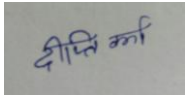 दीप्ति वर्मा